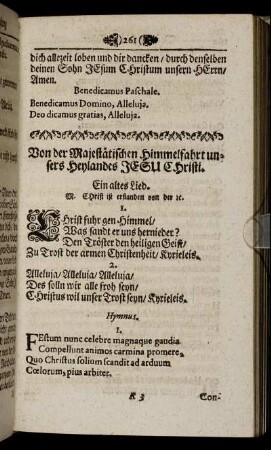 261
dich allezeit loben und dir dancken / durch denselben
deinen Sohn JEsum Christum unsern HErrn /
Amen.
Benedicamus Paschale.
Benedicamus Domino, Alleluja.
Deo dicamus gratias, Alleluja.
Von der Majestätischen Himmelfahrt un-
sers Heylandes JESU Christi.
Ein altes Lied.
M. Christ ist erstanden von der ꝛc.
1.
CHrist fuhr gen Himmel /
Was sandt er uns hernieder?
Den Tröster den heiligen Geist /
Zu Trost der armen Christenheit / Kyrieleis.
2.
Alleluja / Alleluja / Alleluja /
Des solln wir alle froh seyn /
Christus wil unser Trost seyn / Kyrieleis.
Hymnus.
1.
FEstum nunc celebre magnaque gaudia
Compellunt animos carmina promere,
Quo Christus solium scandit ad arduum
Cœlorum, pius arbiter.
R 3
Con-